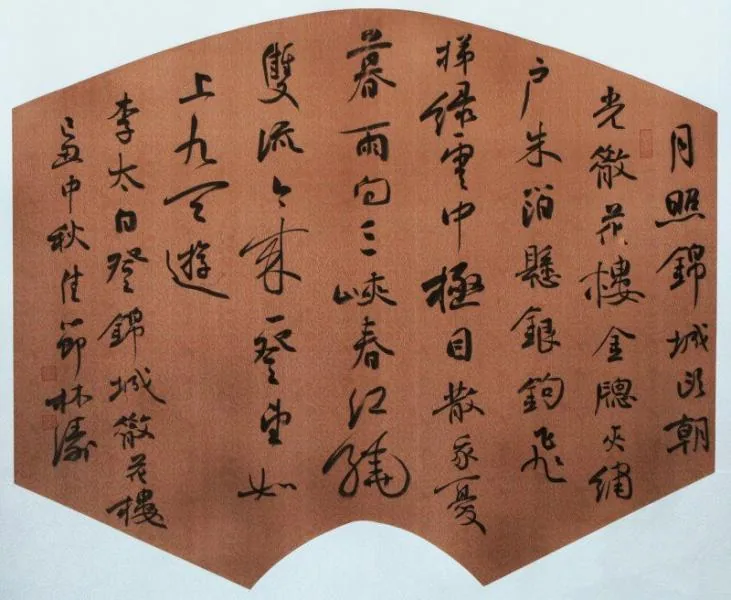 月照錦城頭朝
光徹花樓金牕夾繡
户朱泊懸銀鉤飛
梯緑雲中極目散我憂
暮雨向三峽春江繞
雙流今來一登望如
上九天遊
李太白登錦城徹花樓
己丑中秋佳節林濤